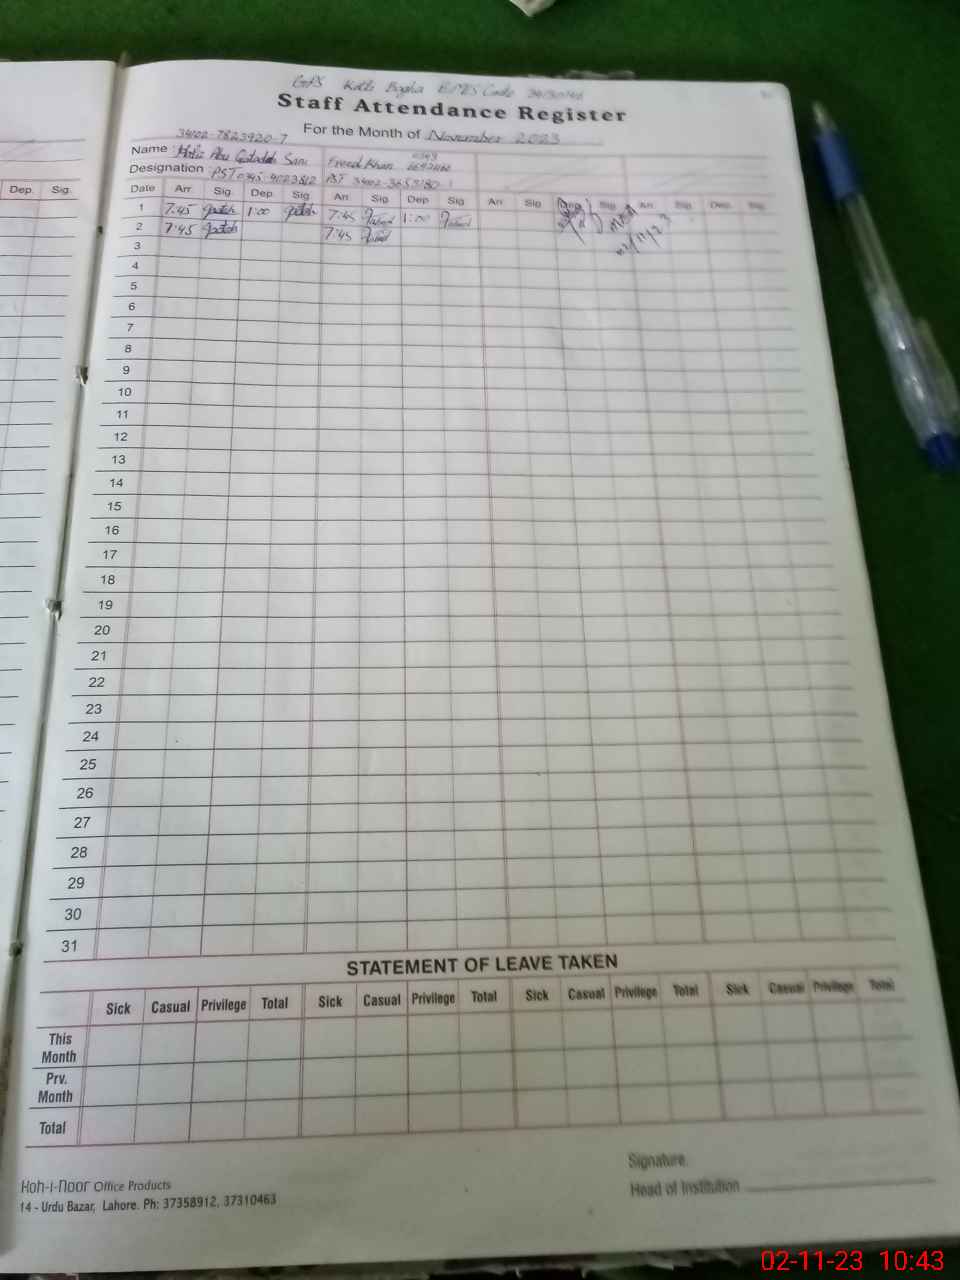 GPS Kotli Bogha EMIS Code
Staff Attendance Register
For the Month of November 2023
34102-7823920-7
Name : Hafiz Abu Sani Freed Khan
Designation : PST 0345-9023812 PST
Date Arr. Sig. Dep. Sig. Arr. Sig. Dep. Sig. Arr. Sig. Dep. Sig. Arr. Sig. Dep. Sig.
Dep. Sig.
1 7:45 1:00 7:45 1:00
2 7:45 7:45
02/11/23
3
4
5
6
7
8
9
10
11
12
13
14
15
16
17
18
19
20
21
22
23
24
25
26
27
28
29
30
31
STATEMENT OF LEAVE TAKEN
Sick Casual Privilege Total Sick Casual Privilege Total Sick Casual Privilege Total Sick Casual Privilege Total
This Month
Prv. Month
Total
Signature.
Head of Institution
Koh-i-Noor Office Products
14 - Urdu Bazar, Lahore. Ph: 37358912, 37310463
02-11-23 10:43